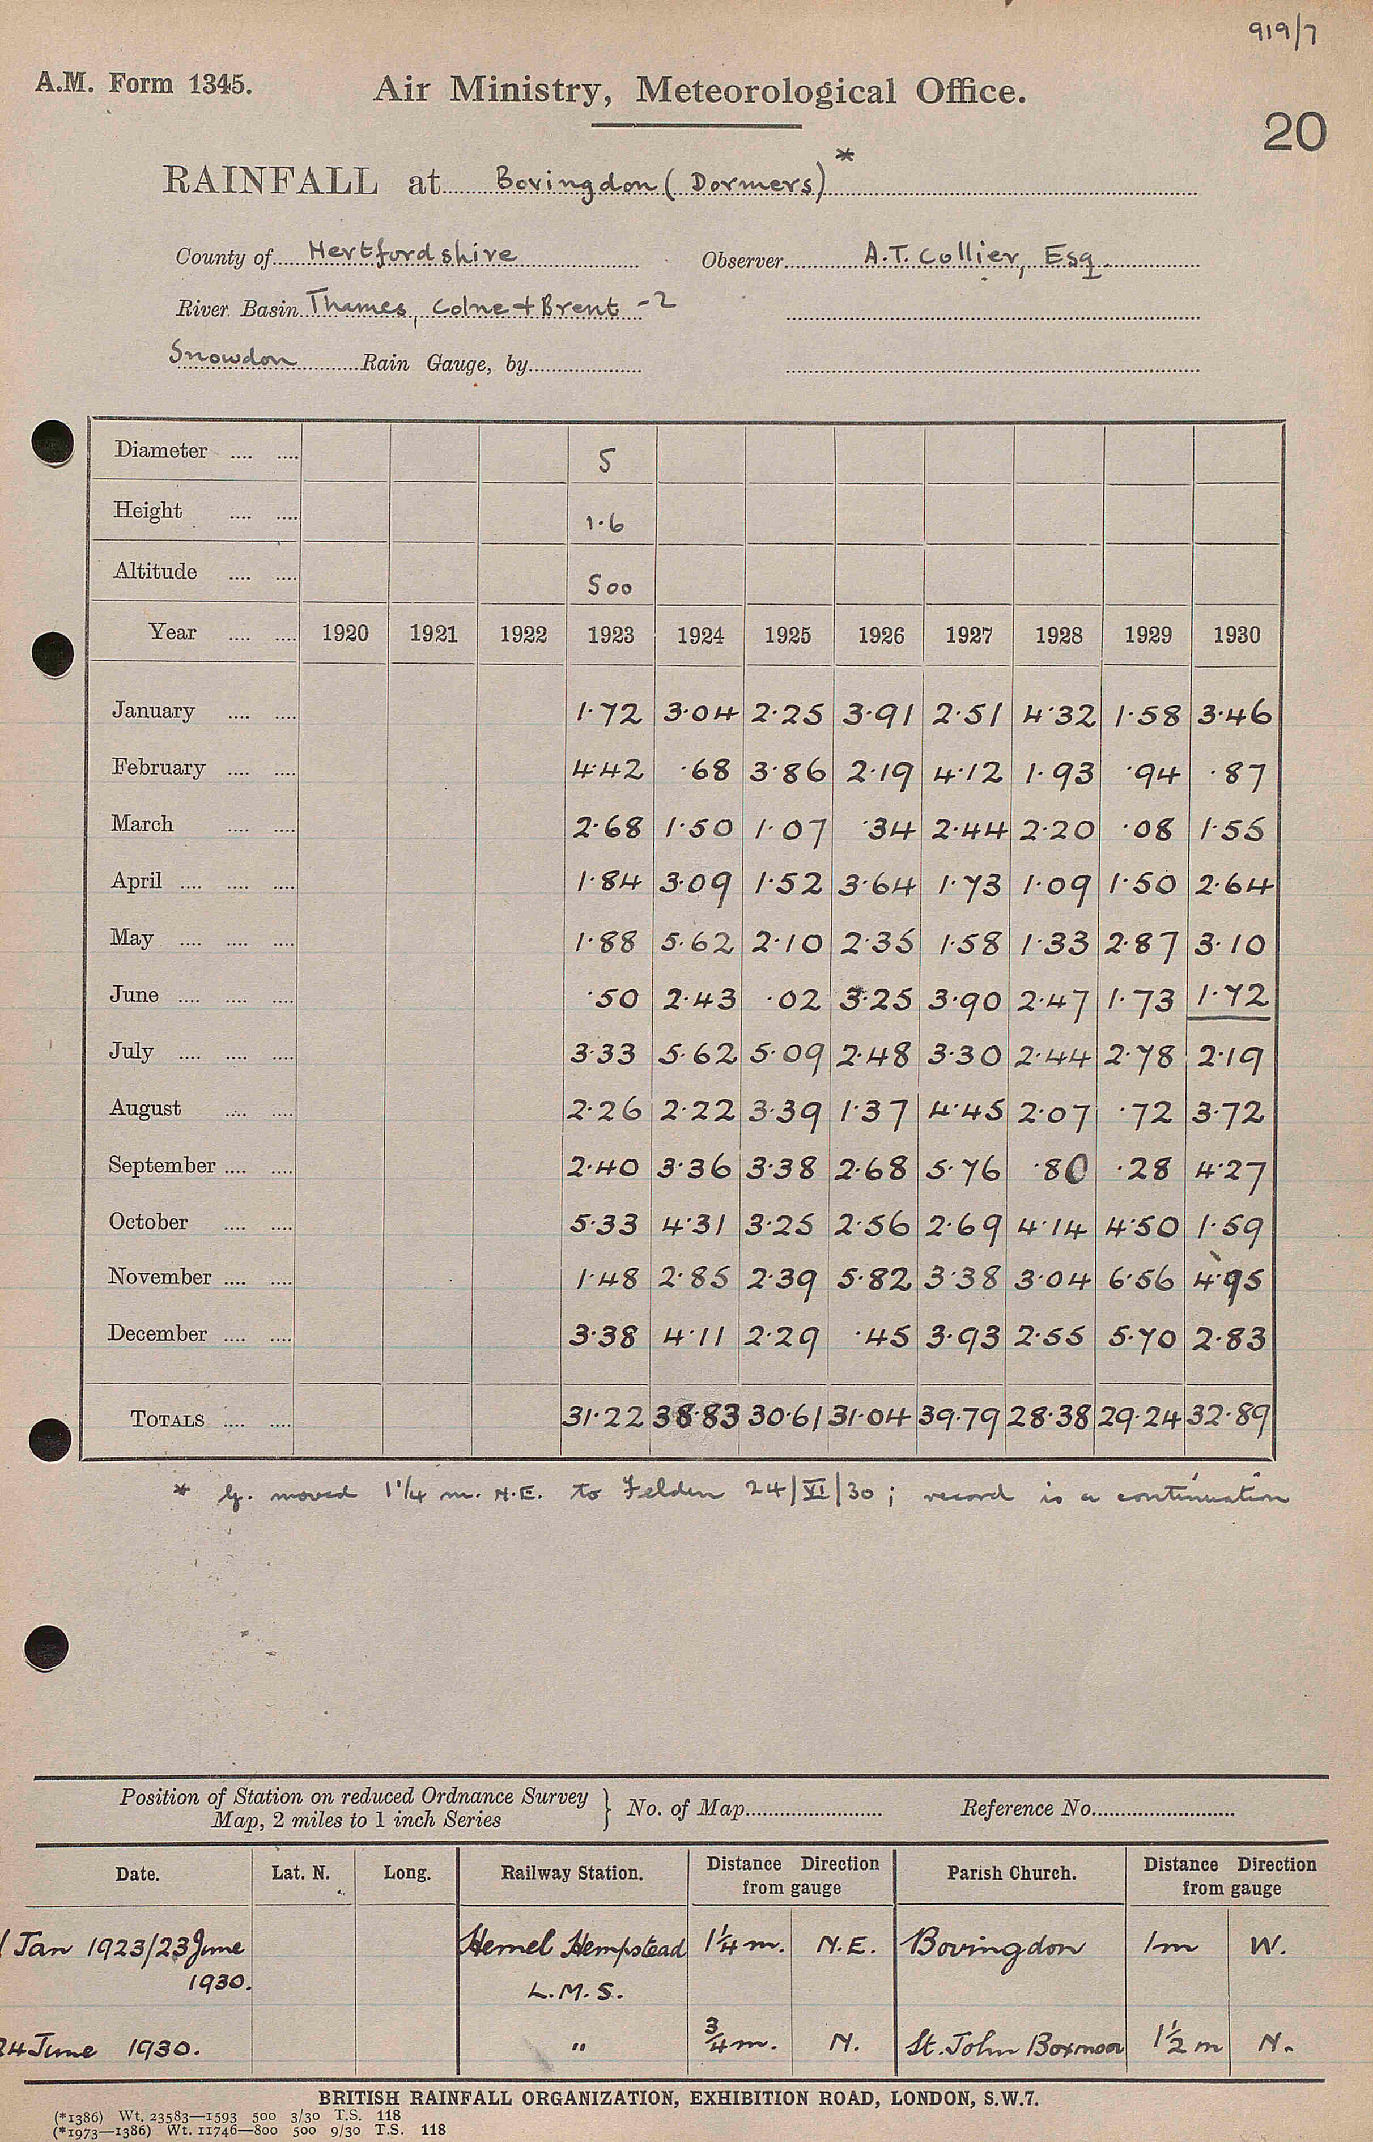 919/7
A.M. Form 1345. Air Ministry, Meteorological Office.
20
RAINFALL at Bovingdon (Dormers) *
County of Hertfordshire Observer A.T. Collier, Esq.
River Basin Thames, Colne + Brent - 2
Snowdon Rain Gauge, by
Diameter .... .... 5
Height .... .... 1·6
Altitude .... .... 500
Year .... .... 1920 1921 1922 1923 1924 1925 1926 1927 1928 1929 1930
January .... .... 1·72 3·04 2·25 3·91 2·51 4·32 1·58 3·46
February .... .... 4·42 ·68 3·86 2·19 4·12 1·93 ·94 ·87
March .... .... 2·68 1·50 1·07 ·34 2·44 2·20 ·08 1·55
April .... .... .... 1·84 3·09 1·52 3·64 1·73 1·09 1·50 2·64
May .... .... .... 1·88 5·62 2·10 2·35 1·58 1·33 2·87 3·10
June .... .... .... ·50 2·43 ·02 3·25 3·90 2·47 1·73 1·72
July .... .... .... 3·33 5·62 5·09 2·48 3·30 2·44 2·78 2·19
August .... .... 2·26 2·22 3·39 1·37 4·45 2·07 ·72 3·72
September .... .... 2·40 3·36 3·38 2·68 5·76 ·80 ·28 4·27
October .... .... 5·33 4·31 3·25 2·56 2·69 4·14 4·50 1·59
November .... .... 1·48 2·85 2·39 5·82 3·38 3·04 6·56 4·95
December .... .... 3·38 4·11 2·29 ·45 3·93 2·55 5·70 2·83
TOTALS .... .... 31·22 38·83 30·61 31·04 39·79 28·38 29·24 32·89
* G. moved 1 1/4 m. N.E. to Felden 24/VI/30; record is a continuation
Position of Station on reduced Ordnance Survey
Map, 2 miles to 1 inch Series } No. of Map Reference No.
Date. Lat. N. Long. Railway Station. Distance Direction from gauge Parish Church. Distance Direction from gauge
1 Jan 1923/23 June Hemel Hempstead 1 1/4 m. N.E. Bovingdon 1m W.
1930. L.M.S.
24 June 1930. " 3/4 m. N. St. John Boxmoor 1 1/2 m N.
BRITISH RAINFALL ORGANIZATION, EXHIBITION ROAD, LONDON, S.W.7.
(*1386) Wt. 23583—1593 500 3/30 T.S. 118
(*1973—1386) Wt. 11746—800 500 9/30 T.S. 118